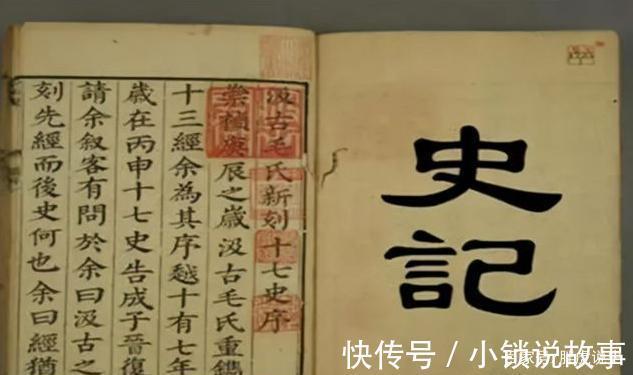 史記
汲古毛氏新刻十七史序
崇禎庚辰之歲汲古毛氏重鐫
十三經余為其序越十有七年
歲在丙申十七史告成子晉復
請余叙客有問於余曰汲古之
刻先經而後史何也余曰經猶
快传号 / 小锁说故事